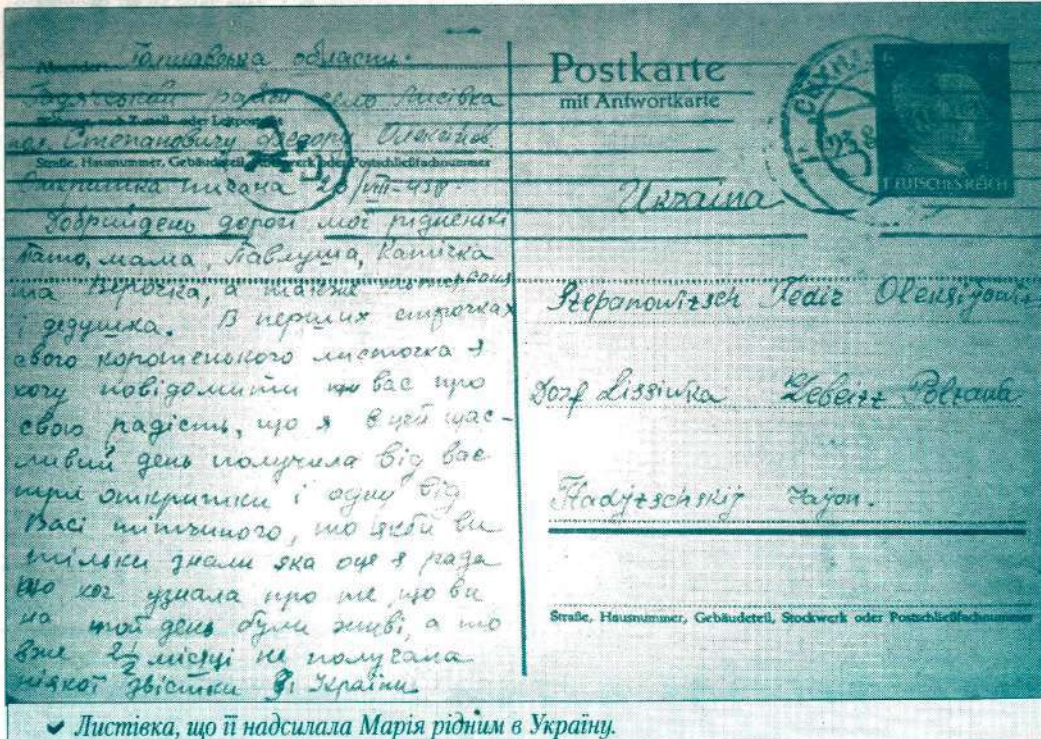 Absender:
Полтавська область.
Гадяцький район село Лисівка
Степановичу Федору Олексійов.
Straße, Hausnummer, Gebäudeteil, Stockwerk oder Postschließfachnummer
Открытка писана 20/VIII-43р.
Добрийдень дорогі мої рідненькі
тато, мама, Павлуша, Катічка
та Вєрочка, а також
і дєдушка. В перших строчках
свого коротенького листочка я
хочу повідомити вас про
свою радість, що я в цей щас-
ливий день получила від вас
три открытки і одну від
Васі тітчиного, то якби ви
тільки знали яка оце я рада
що хоч узнала про те що ви
на той день були живі, а то
вже 2½ місяці не получала
ніякої звістки з України
Postkarte
mit Antwortkarte
DEUTSCHES REICH
Ukraina
Stepanowitsch Fedir Oleksijowitsch
Dorf Lissiwka Gebeitz Poltawa
Hadjtschskij rajon.
Straße, Hausnummer, Gebäudeteil, Stockwerk oder Postschließfachnummer
✔ Листівка, що її надсилала Марія рідним в Україну.